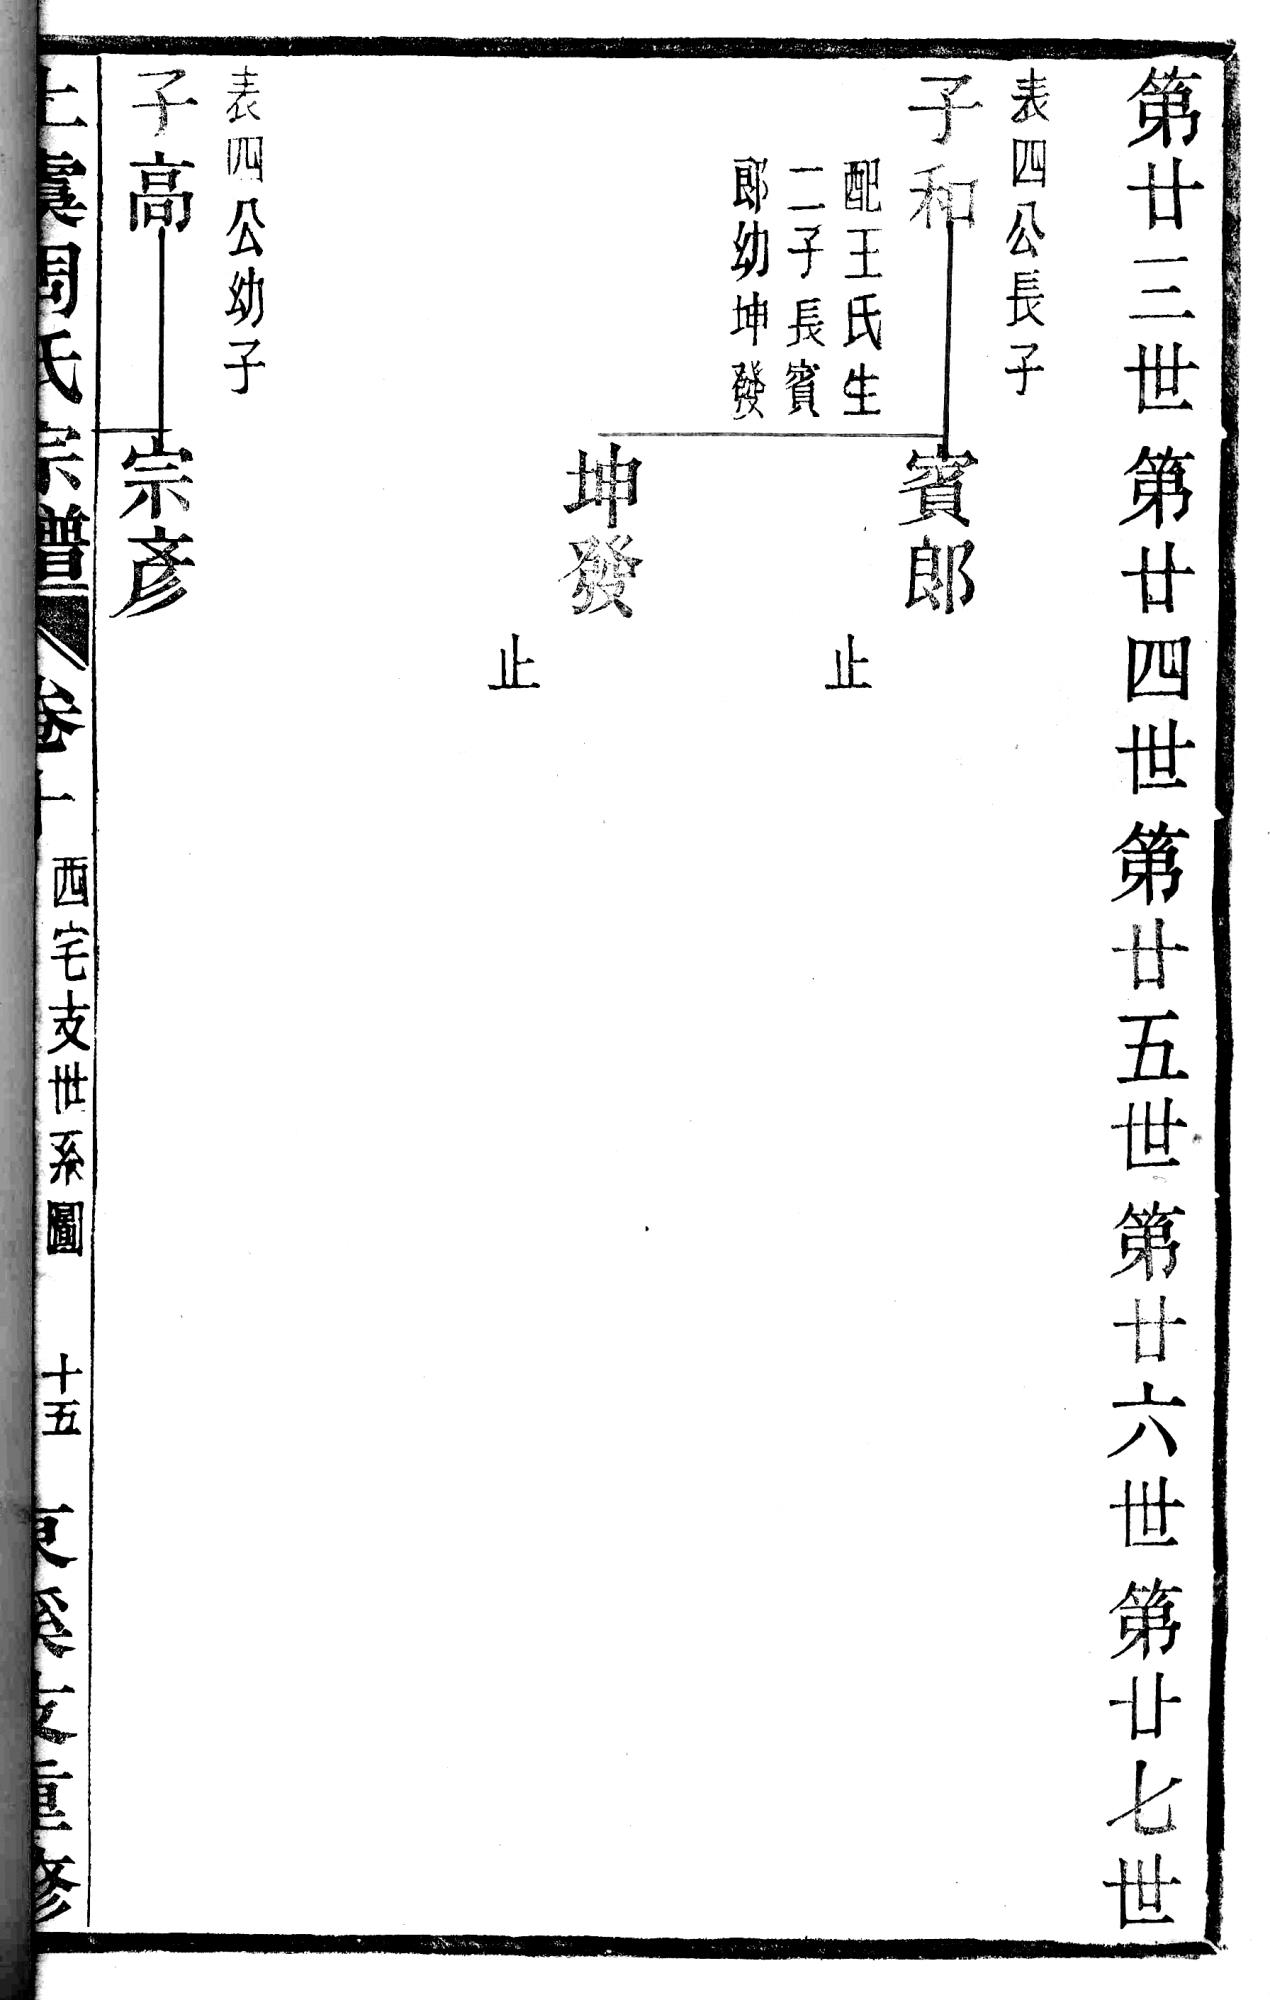 第廿三世第廿四世第廿五世第廿六世第廿七世
表四公長子
子和
配王氏生
二子長賓
郎幼坤發
賓郎
止
坤發
止
表四公幼子
子高
宗彥
上虞周氏宗譜
卷
西宅支世系圖
十五
重修